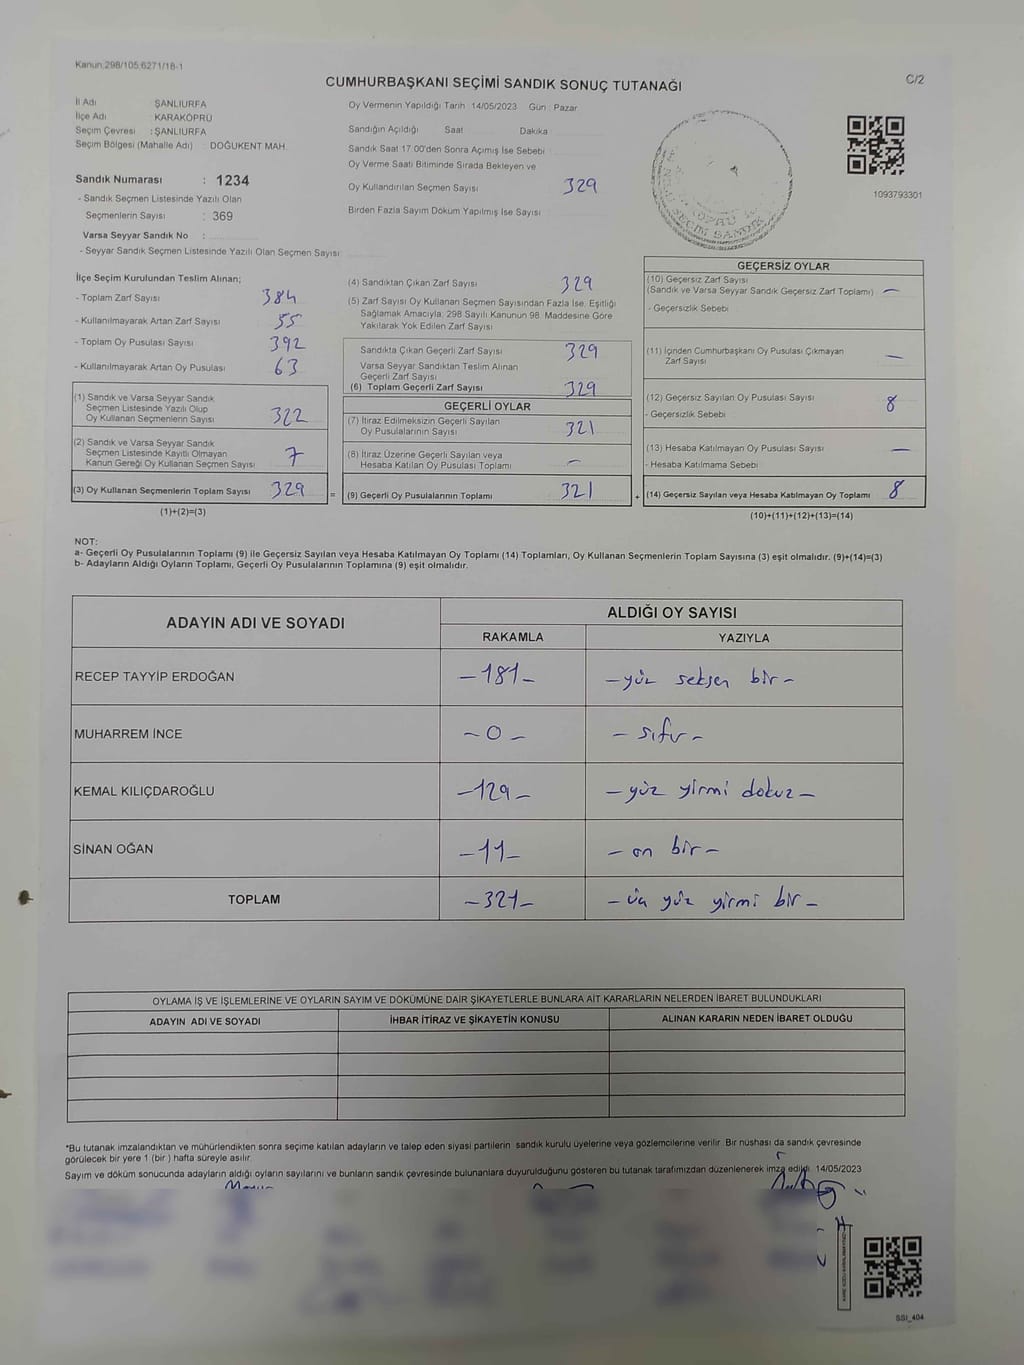 Kanun:298/105;6271/18-1
CUMHURBAŞKANI SEÇİMİ SANDIK SONUÇ TUTANAĞI
C/2
İl Adı ŞANLIURFA
İlçe Adı : KARAKÖPRÜ
Seçim Çevresi : ŞANLIURFA
Seçim Bölgesi (Mahalle Adı) : DOĞUKENT MAH.
Sandık Numarası : 1234
- Sandık Seçmen Listesinde Yazılı Olan
Seçmenlerin Sayısı : 369
Varsa Seyyar Sandık No :
- Seyyar Sandık Seçmen Listesinde Yazılı Olan Seçmen Sayısı
Oy Vermenin Yapıldığı Tarih 14/05/2023 Gün : Pazar
Sandığın Açıldığı Saat Dakika
Sandık Saat 17.00'den Sonra Açımış İse Sebebi
Oy Verme Saati Bitiminde Sırada Bekleyen ve
Oy Kullandırılan Seçmen Sayısı 329
Birden Fazla Sayım Döküm Yapılmış İse Sayısı
SEÇİM SANDIK
1093793301
İlçe Seçim Kurulundan Teslim Alınan;
- Toplam Zarf Sayısı 384
- Kullanılmayarak Artan Zarf Sayısı 55
- Toplam Oy Pusulası Sayısı 392
- Kullanılmayarak Artan Oy Pusulası 63
(1) Sandık ve Varsa Seyyar Sandık
Seçmen Listesinde Yazılı Olup
Oy Kullanan Seçmenlerin Sayısı 322
(2) Sandık ve Varsa Seyyar Sandık
Seçmen Listesinde Kayıtlı Olmayan
Kanun Gereği Oy Kullanan Seçmen Sayısı 7
(3) Oy Kullanan Seçmenlerin Toplam Sayısı 329
(1)+(2)=(3)
(4) Sandıktan Çıkan Zarf Sayısı 329
(5) Zarf Sayısı Oy Kullanan Seçmen Sayısından Fazla İse, Eşitliği
Sağlamak Amacıyla; 298 Sayılı Kanunun 98. Maddesine Göre
Yakılarak Yok Edilen Zarf Sayısı
Sandıkta Çıkan Geçerli Zarf Sayısı 329
Varsa Seyyar Sandıktan Teslim Alınan
Geçerli Zarf Sayısı
(6) Toplam Geçerli Zarf Sayısı 329
GEÇERLİ OYLAR
(7) İtiraz Edilmeksizin Geçerli Sayılan
Oy Pusulalarının Sayısı 321
(8) İtiraz Üzerine Geçerli Sayılan veya
Hesaba Katılan Oy Pusulası Toplamı —
= (9) Geçerli Oy Pusulalarının Toplamı 321
GEÇERSİZ OYLAR
(10) Geçersiz Zarf Sayısı
(Sandık ve Varsa Seyyar Sandık Geçersiz Zarf Toplamı) —
- Geçersizlik Sebebi
(11) İçinden Cumhurbaşkanı Oy Pusulası Çıkmayan
Zarf Sayısı —
(12) Geçersiz Sayılan Oy Pusulası Sayısı 8
- Geçersizlik Sebebi
(13) Hesaba Katılmayan Oy Pusulası Sayısı —
- Hesaba Katılmama Sebebi
+ (14) Geçersiz Sayılan veya Hesaba Katılmayan Oy Toplamı 8
(10)+(11)+(12)+(13)=(14)
NOT:
a- Geçerli Oy Pusulalarının Toplamı (9) ile Geçersiz Sayılan veya Hesaba Katılmayan Oy Toplamı (14) Toplamları, Oy Kullanan Seçmenlerin Toplam Sayısına (3) eşit olmalıdır. (9)+(14)=(3)
b- Adayların Aldığı Oyların Toplamı, Geçerli Oy Pusulalarının Toplamına (9) eşit olmalıdır.
ADAYIN ADI VE SOYADI ALDIĞI OY SAYISI
RAKAMLA YAZIYLA
RECEP TAYYİP ERDOĞAN -181- -yüz seksen bir-
MUHARREM İNCE -0- -sıfır-
KEMAL KILIÇDAROĞLU -129- -yüz yirmi dokuz-
SİNAN OĞAN -11- -on bir-
TOPLAM -321- -üç yüz yirmi bir-
OYLAMA İŞ VE İŞLEMLERİNE VE OYLARIN SAYIM VE DÖKÜMÜNE DAİR ŞİKAYETLERLE BUNLARA AİT KARARLARIN NELERDEN İBARET BULUNDUKLARI
ADAYIN ADI VE SOYADI İHBAR İTİRAZ VE ŞİKAYETİN KONUSU ALINAN KARARIN NEDEN İBARET OLDUĞU
*Bu tutanak imzalandıktan ve mühürlendikten sonra seçime katılan adayların ve talep eden siyasi partilerin sandık kurulu üyelerine veya gözlemcilerine verilir. Bir nüshası da sandık çevresinde
görülecek bir yere 1 (bir ) hafta süreyle asılır.
Sayım ve döküm sonucunda adayların aldığı oyların sayılarını ve bunların sandık çevresinde bulunanlara duyurulduğunu gösteren bu tutanak tarafımızdan düzenlenerek imza edildi. 14/05/2023
SSI_404